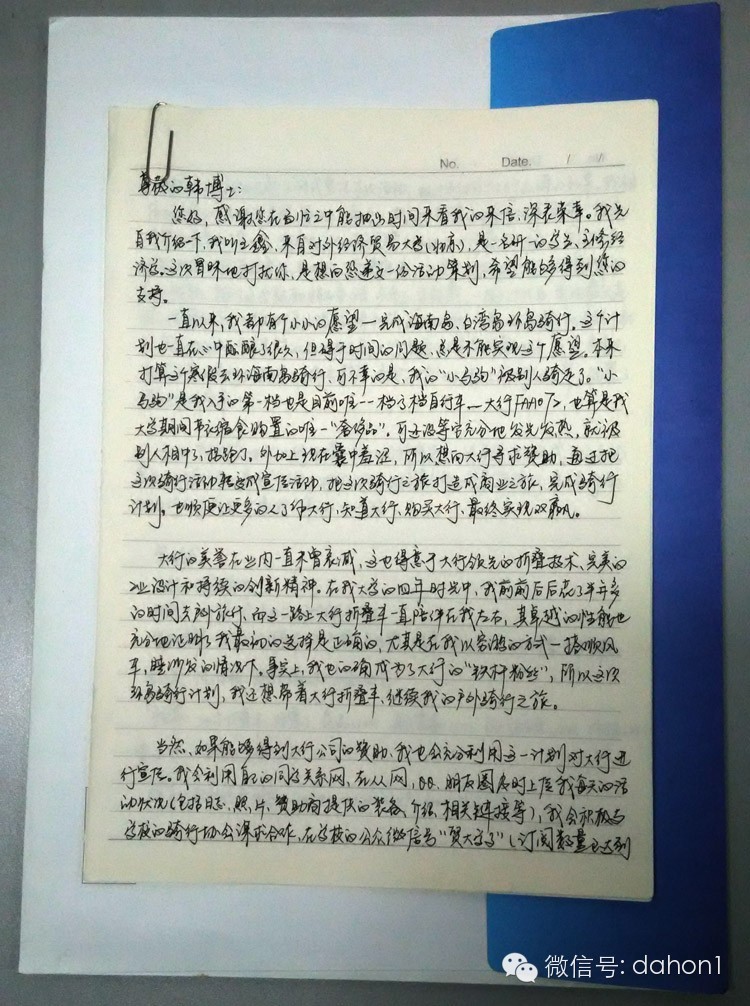 No.   Date.   /   /
尊敬的韩博士：
您好，感谢您在百忙之中能抽出时间来看我的来信，深表荣幸。我先
自我介绍一下，我叫王鑫，来自对外经济贸易大学(北京)，是一名研一的学生，主修经
济学。这次冒昧地打扰你，是想向您递交一份活动策划，希望能够得到您的
支持。
一直以来，我都有个小小的愿望—完成海南岛、台湾岛环岛骑行。这个计
划也一直在心中酝酿了很久，但碍于时间的问题，总是不能实现这个愿望。本来
打算这个寒假去环海南岛骑行，可不幸的是，我的“小马驹”被别人骑走了。“小
马驹”是我入手的第一档也是目前唯一一档高档自行车—大行 072，也算是我
大学期间节衣缩食购置的唯一“奢侈品”。可还没等它充分地发光发热，就被
别人相中了，拐跑了。外加上现在囊中羞涩，所以想向大行寻求赞助，通过把
这次骑行活动转变成宣传活动，把这次骑行之旅打造成商业之旅，完成骑行
计划。也顺便让更多的人了解大行，知道大行，购买大行，最终实现双赢。
大行的美誉在业内一直未曾衰减，这也得意于大行领先的折叠技术、完美的
工业设计和持续的创新精神。在我大学的四年时光中，我前前后后花了半年多
的时间去旅行，而这一路上大行折叠车一直陪伴在我左右，其卓越的性能也
充分地证明了我最初的选择是正确的，尤其是在我以穷游的方式—搭顺风
车，睡沙发的情况下。事实上，我也的确成为了大行的“铁杆粉丝”，所以这次
环岛骑行计划，我还想带着大行折叠车，继续我的户外骑行之旅。
当然，如果能够得到大行公司的赞助，我也会充分利用这一计划对大行进
行宣传。我会利用自己的同学关系网，在人人网，QQ，朋友圈及时上传我每天的活
动状况(包括日志、照片、赞助商提供的装备、介绍、相关链接等)，我会积极与
学校的骑行协会谋求合作，在学校的公众微信号“贸大学子”(订阅数量已达到
微信号: dahon1